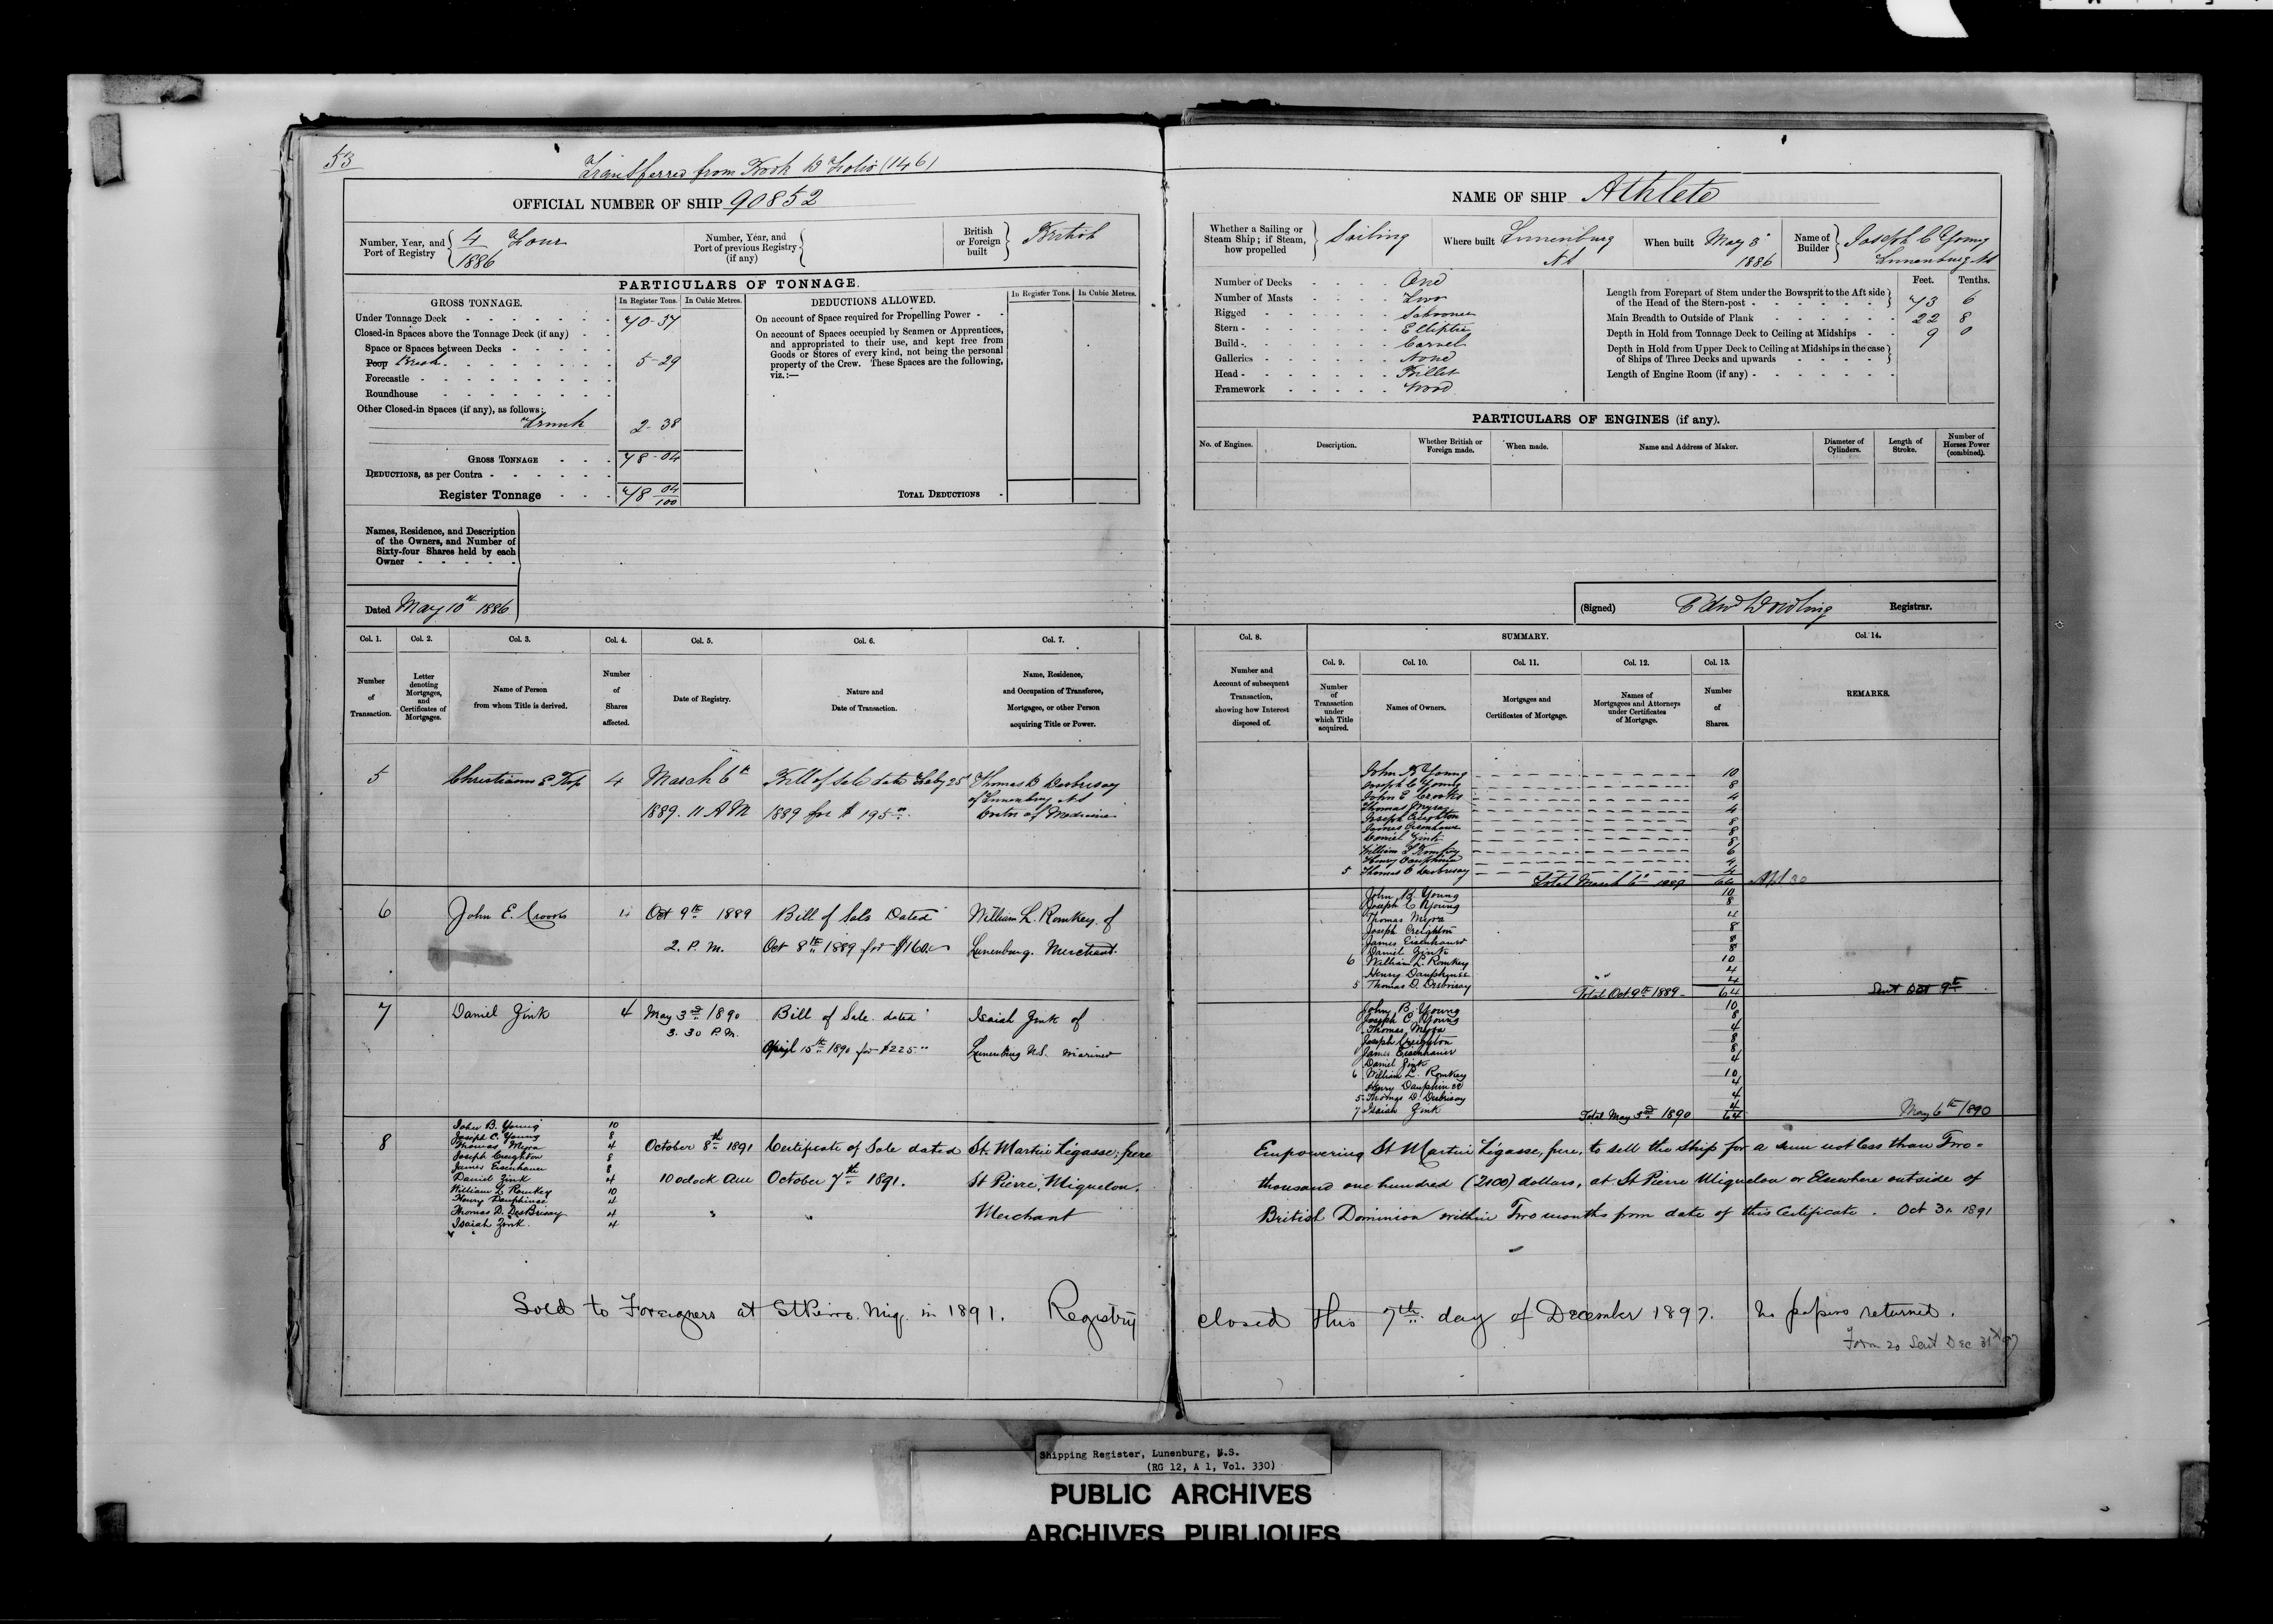 53
Transferred from Book B Folio (146)
OFFICIAL NUMBER OF SHIP 90852
Number, Year, and Port of Registry 4 Four 1886
Number, Year, and Port of previous Registry (if any)
British or Foreign built British
PARTICULARS OF TONNAGE.
GROSS TONNAGE. In Register Tons. In Cubic Metres.
Under Tonnage Deck 70-37
Closed-in Spaces above the Tonnage Deck (if any)
Space or Spaces between Decks
Poop Break 5-29
Forecastle
Roundhouse
Other Closed-in Spaces (if any), as follows:
Trunk 2-38
GROSS TONNAGE 78-04
DEDUCTIONS, as per Contra
Register Tonnage 78 04/100
DEDUCTIONS ALLOWED. In Register Tons. In Cubic Metres.
On account of Space required for Propelling Power
On account of Spaces occupied by Seamen or Apprentices,
and appropriated to their use, and kept free from
Goods or Stores of every kind, not being the personal
property of the Crew. These Spaces are the following,
viz.:—
TOTAL DEDUCTIONS
Names, Residence, and Description
of the Owners, and Number of
Sixty-four Shares held by each
Owner
Dated May 10th 1886
NAME OF SHIP Athlete
Whether a Sailing or Steam Ship; if Steam, how propelled Sailing
Where built Lunenburg NS
When built May 8 1886
Name of Builder Joseph C Young Lunenburg NS
Number of Decks One
Number of Masts Two
Rigged Schooner
Stern Elliptic
Build Carvel
Galleries None
Head Billet
Framework Wood
Feet. Tenths.
Length from Forepart of Stem under the Bowsprit to the Aft side
of the Head of the Stern-post 73 6
Main Breadth to Outside of Plank 22 8
Depth in Hold from Tonnage Deck to Ceiling at Midships 9 0
Depth in Hold from Upper Deck to Ceiling at Midships in the case
of Ships of Three Decks and upwards
Length of Engine Room (if any)
PARTICULARS OF ENGINES (if any).
No. of Engines. Description. Whether British or Foreign made. When made. Name and Address of Maker. Diameter of Cylinders. Length of Stroke. Number of Horses Power (combined).
(Signed) Edwd Dowling Registrar.
Col. 1. Col. 2. Col. 3. Col. 4. Col. 5. Col. 6. Col. 7.
Number of Transaction.
Letter denoting Mortgages, and Certificates of Mortgages.
Name of Person from whom Title is derived.
Number of Shares affected.
Date of Registry.
Nature and Date of Transaction.
Name, Residence, and Occupation of Transferee, Mortgagee, or other Person acquiring Title or Power.
Col. 8. SUMMARY. Col. 14.
Col. 9. Col. 10. Col. 11. Col. 12. Col. 13.
Number and Account of subsequent Transaction, showing how Interest disposed of.
Number of Transaction under which Title acquired.
Names of Owners.
Mortgages and Certificates of Mortgage.
Names of Mortgagees and Attorneys under Certificates of Mortgage.
Number of Shares.
REMARKS.
5 4 March 6th Bill of Sale date Feby 25 Thomas D Desbrisay
1889. 11 AM 1889 for $195 of Lunenburg NS
Doctor of Medicine
John B Young 10
Joseph C Young 8
John E Crooks 4
Thomas Myra 4
Joseph Creighton 8
James Eisenhauer 8
Daniel Zink 8
William L Romkey 6
Henry Dauphinee 4
5 Thomas D Desbrisay 4
Total March 6th 1889 64 Apl 30
6 John E. Crooks 4 Oct 9th 1889 Bill of Sale Dated William L. Romkey of
2. P.M. Oct 8th 1889 for $160 Lunenburg. Merchant.
John B. Young 10
Joseph C Young 8
Thomas Myra 4
Joseph Creighton 8
James Eisenhauer 8
Daniel Zink 8
6 William L. Romkey 10
Henry Dauphinee 4
5 Thomas D. Desbrisay 4
Total Oct 9th 1889 64 Sent Oct 9th
7 Daniel Zink 4 May 3rd 1890 Bill of Sale dated Isaiah Zink of
3.30 P.M. April 15th 1890 for $225 Lunenburg N.S. Mariner
John B. Young 10
Joseph C. Young 8
Thomas Myra 4
Joseph Creighton 8
James Eisenhauer 8
Daniel Zink 4
6 William L. Romkey 10
Henry Dauphinee 4
5 Thomas D. Desbrisay 4
7 Isaiah Zink 4
Total May 3rd 1890 64 May 6th 1890
8 John B. Young 10
Joseph C. Young 8
Thomas Myra 4
Joseph Creighton 8
James Eisenhauer 8
Daniel Zink 4
William L Romkey 10
Henry Dauphinee 4
Thomas D. DesBrisay 4
Isaiah Zink. 4
October 8th 1891 Certificate of Sale dated St. Martin Légasse, père
10 oclock am October 7th 1891. St Pierre, Miquelon.
Merchant
Empowering St Martin Légasse, père, to sell the Ship for a sum not less than Two-
thousand one hundred (2100) dollars, at St Pierre Miquelon or Elsewhere outside of
British Dominion within Two months from date of this Certificate. Oct 31 1891
Sold to Foreigners at St Pierre. Miq. in 1891. Registry closed this 7th day of December 1897. No papers returned.
Form 20 Sent Dec 31st 97
Shipping Register, Lunenburg, N.S.
(RG 12, A 1, Vol. 330)
PUBLIC ARCHIVES
ARCHIVES PUBLIQUES